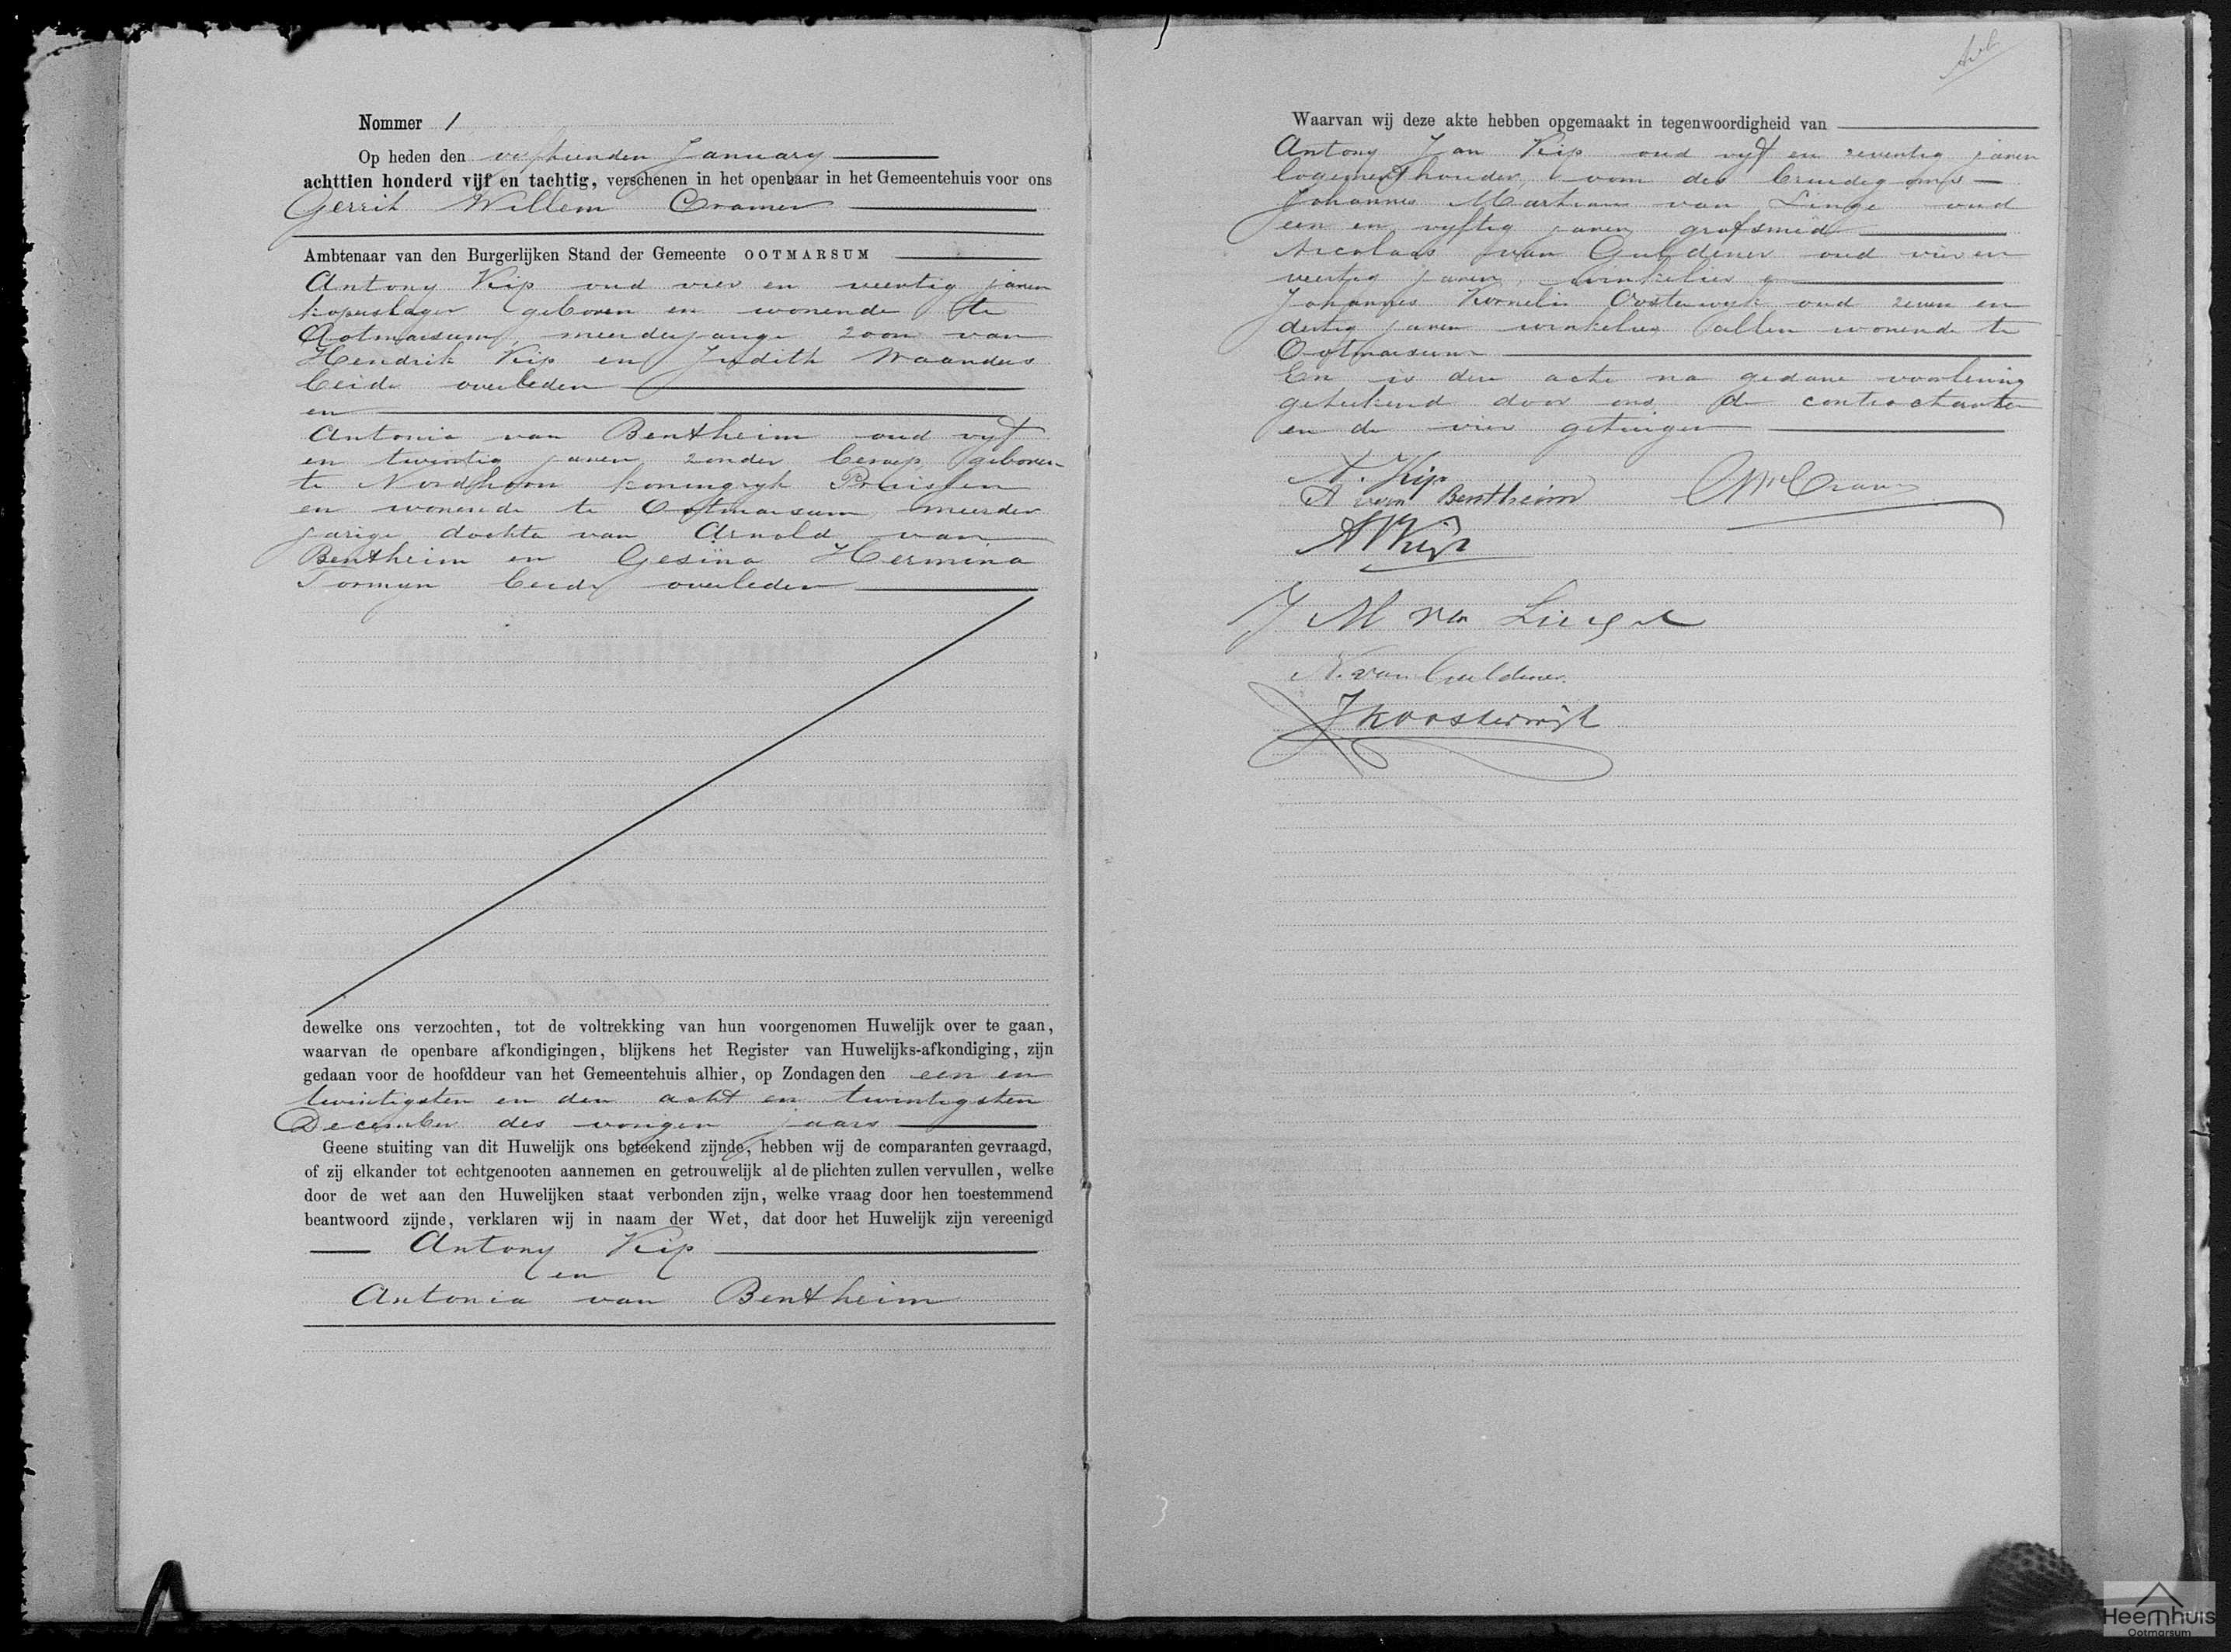 Nommer 1
Op heden den vijftienden January
achttien honderd vijf en tachtig, verschenen in het openbaar in het Gemeentehuis voor ons
Gerrit Willem Cramer
Ambtenaar van den Burgerlijken Stand der Gemeente OOTMARSUM
Antony Kip oud vier en veertig jaren
koperslager geboren en wonende te
Ootmarsum, meerderjarige zoon van
Hendrik Kip en Judith Waanders
beide overleden
en
Antonia van Bentheim oud vijf
en twintig jaren zonder beroep geboren
te Nordhorn koningryk Pruissen
en wonende te Ootmarsum meerder
jarige dochter van Arnold van
Bentheim en Gesina Hermina
beide overleden
dewelke ons verzochten, tot de voltrekking van hun voorgenomen Huwelijk over te gaan,
waarvan de openbare afkondigingen, blijkens het Register van Huwelijks-afkondiging, zijn
gedaan voor de hoofddeur van het Gemeentehuis alhier, op Zondagen den een en
twintigsten en den acht en twintigsten
December des vorigen jaars
Geene stuiting van dit Huwelijk ons beteekend zijnde, hebben wij de comparanten gevraagd,
of zij elkander tot echtgenooten aannemen en getrouwelijk al de plichten zullen vervullen, welke
door de wet aan den Huwelijken staat verbonden zijn, welke vraag door hen toestemmend
beantwoord zijnde, verklaren wij in naam der Wet, dat door het Huwelijk zijn vereenigd
Antony Kip
en
Antonia van Bentheim
Waarvan wij deze akte hebben opgemaakt in tegenwoordigheid van
Antony Jan Kip oud vijf en zeventig jaren
logementhouder, oom des bruidegoms
Johannes Martinus van Linge oud
een en vyftig jaren grofsmid
Nicolaas van Guldener oud vier en
veertig jaren, winkelier en
Johannes Kornelis Oosterwijk oud zeven en
dertig jaren winkelier allen wonende te
Ootmarsum
En is deze acte na gedane voorlezing
geteekend door ons, de contractanten
en de vier getuigen
A. Kip
A van Bentheim GW Cramer
A J Kip
J M van Linge
N. van Guldener.
J K Oosterwijk
Heemhuis
Ootmarsum